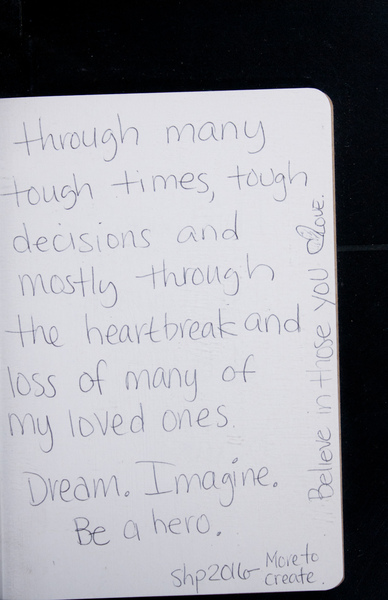 through many
tough times, tough
decisions and
mostly through
the heartbreak and
loss of many of
my loved ones.
Dream. Imagine.
Be a hero.
shp2016
More to
create.
Believe in those you love.